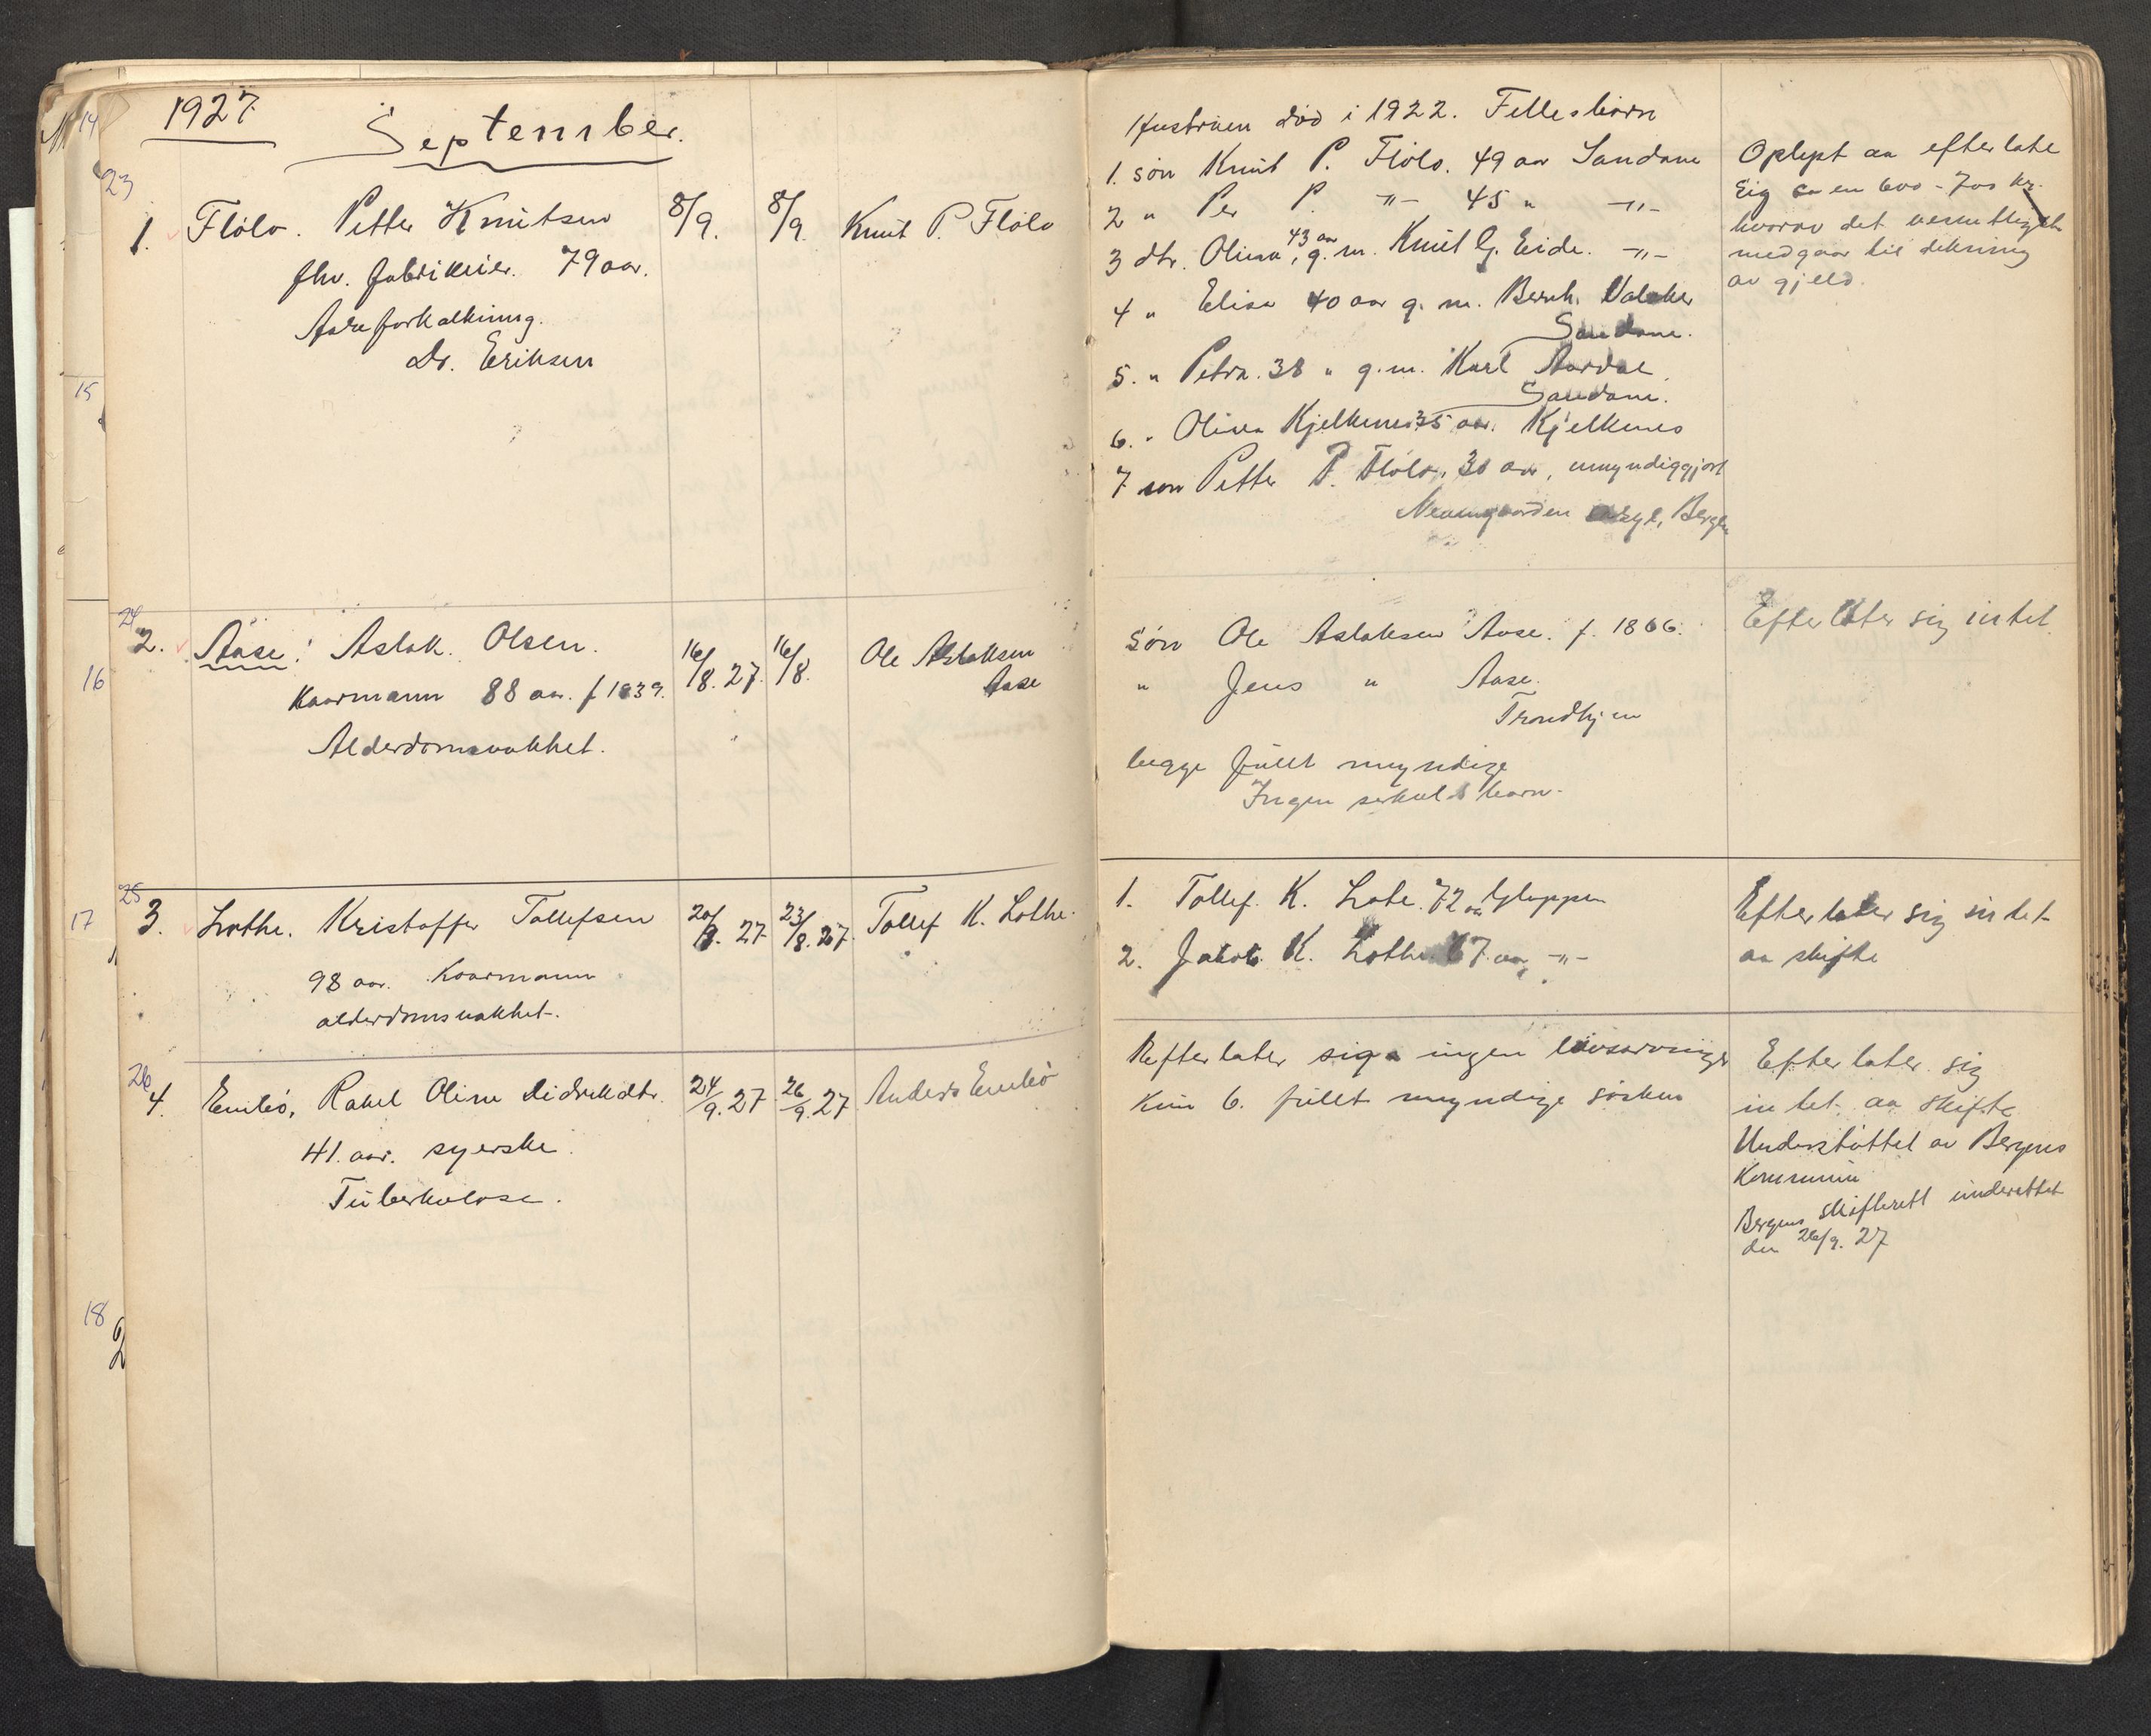 1927
September.
23
1. Flölo. Petter Knutsen 8/9. 8/9. Knut P. Flölo
fhv. fabrikeier. 79 aar.
Aareforkalkning.
Dr. Eriksen
24
2. Aase: Aslak. Olsen. 16/8. 27. 16/8. Ole Aslaksen
Aase
Kaarmann 88 aar. f 1839.
Alderdomsvakhet.
25
3. Lothe. Kristoffer Tollefsen 20/8. 27 23/8. 27. Tollef K. Lothe.
98 aar. Kaarmann
alderdomsvakhet.
26
4. Embö, Rakel Oline Didrikdtr. 24/9. 27 26/9. 27 Anders Embö
41. aar. syerske.
Tuberkulose.
14
15
16
17
18
Hustruen död i 1922. Fellesbörn
1. sön Knut P. Flölo. 49 aar Sandane
2 " Per P. -"- 45 " -"-
3 dtr. Olina, 43 aar g. m. Knut G. Eide. -"-
4 " Elisa 40 aar g. m. Bernh.
Sandane.
5. " Petra. 38 " g. m. Karl Aardal.
Sandane.
6. " Olivia Kjelkenes 35 aar. Kjelkenes
7 sön Petter P. Flölo, 30 aar, umyndiggjort
Neumgaarden asyl, Bergen
Oplyst aa efterlate
sig ca en 600 - 700 kr.
hvorav det vesentligste
medgaar til dekning
av gjeld.
Sön Ole Aslaksen Aase. f. 1866.
" Jens " Aase.
Trondhjem
begge fullt myndige
Ingen serkulsbarn.
Efterlater sig intet.
1. Tollef. K. Lote. 72 aar Gloppen
2. Jakob K. Lothe 67 aar -"-
Efterlater sig intet
aa skifte
Efterlater sig ingen livsarvinger
Kun 6. fullt myndige sösken
Efterlater sig
intet aa skifte
Understöttet av Bergens
Kommune
Bergens skifterett underettet
den 26/9. 27